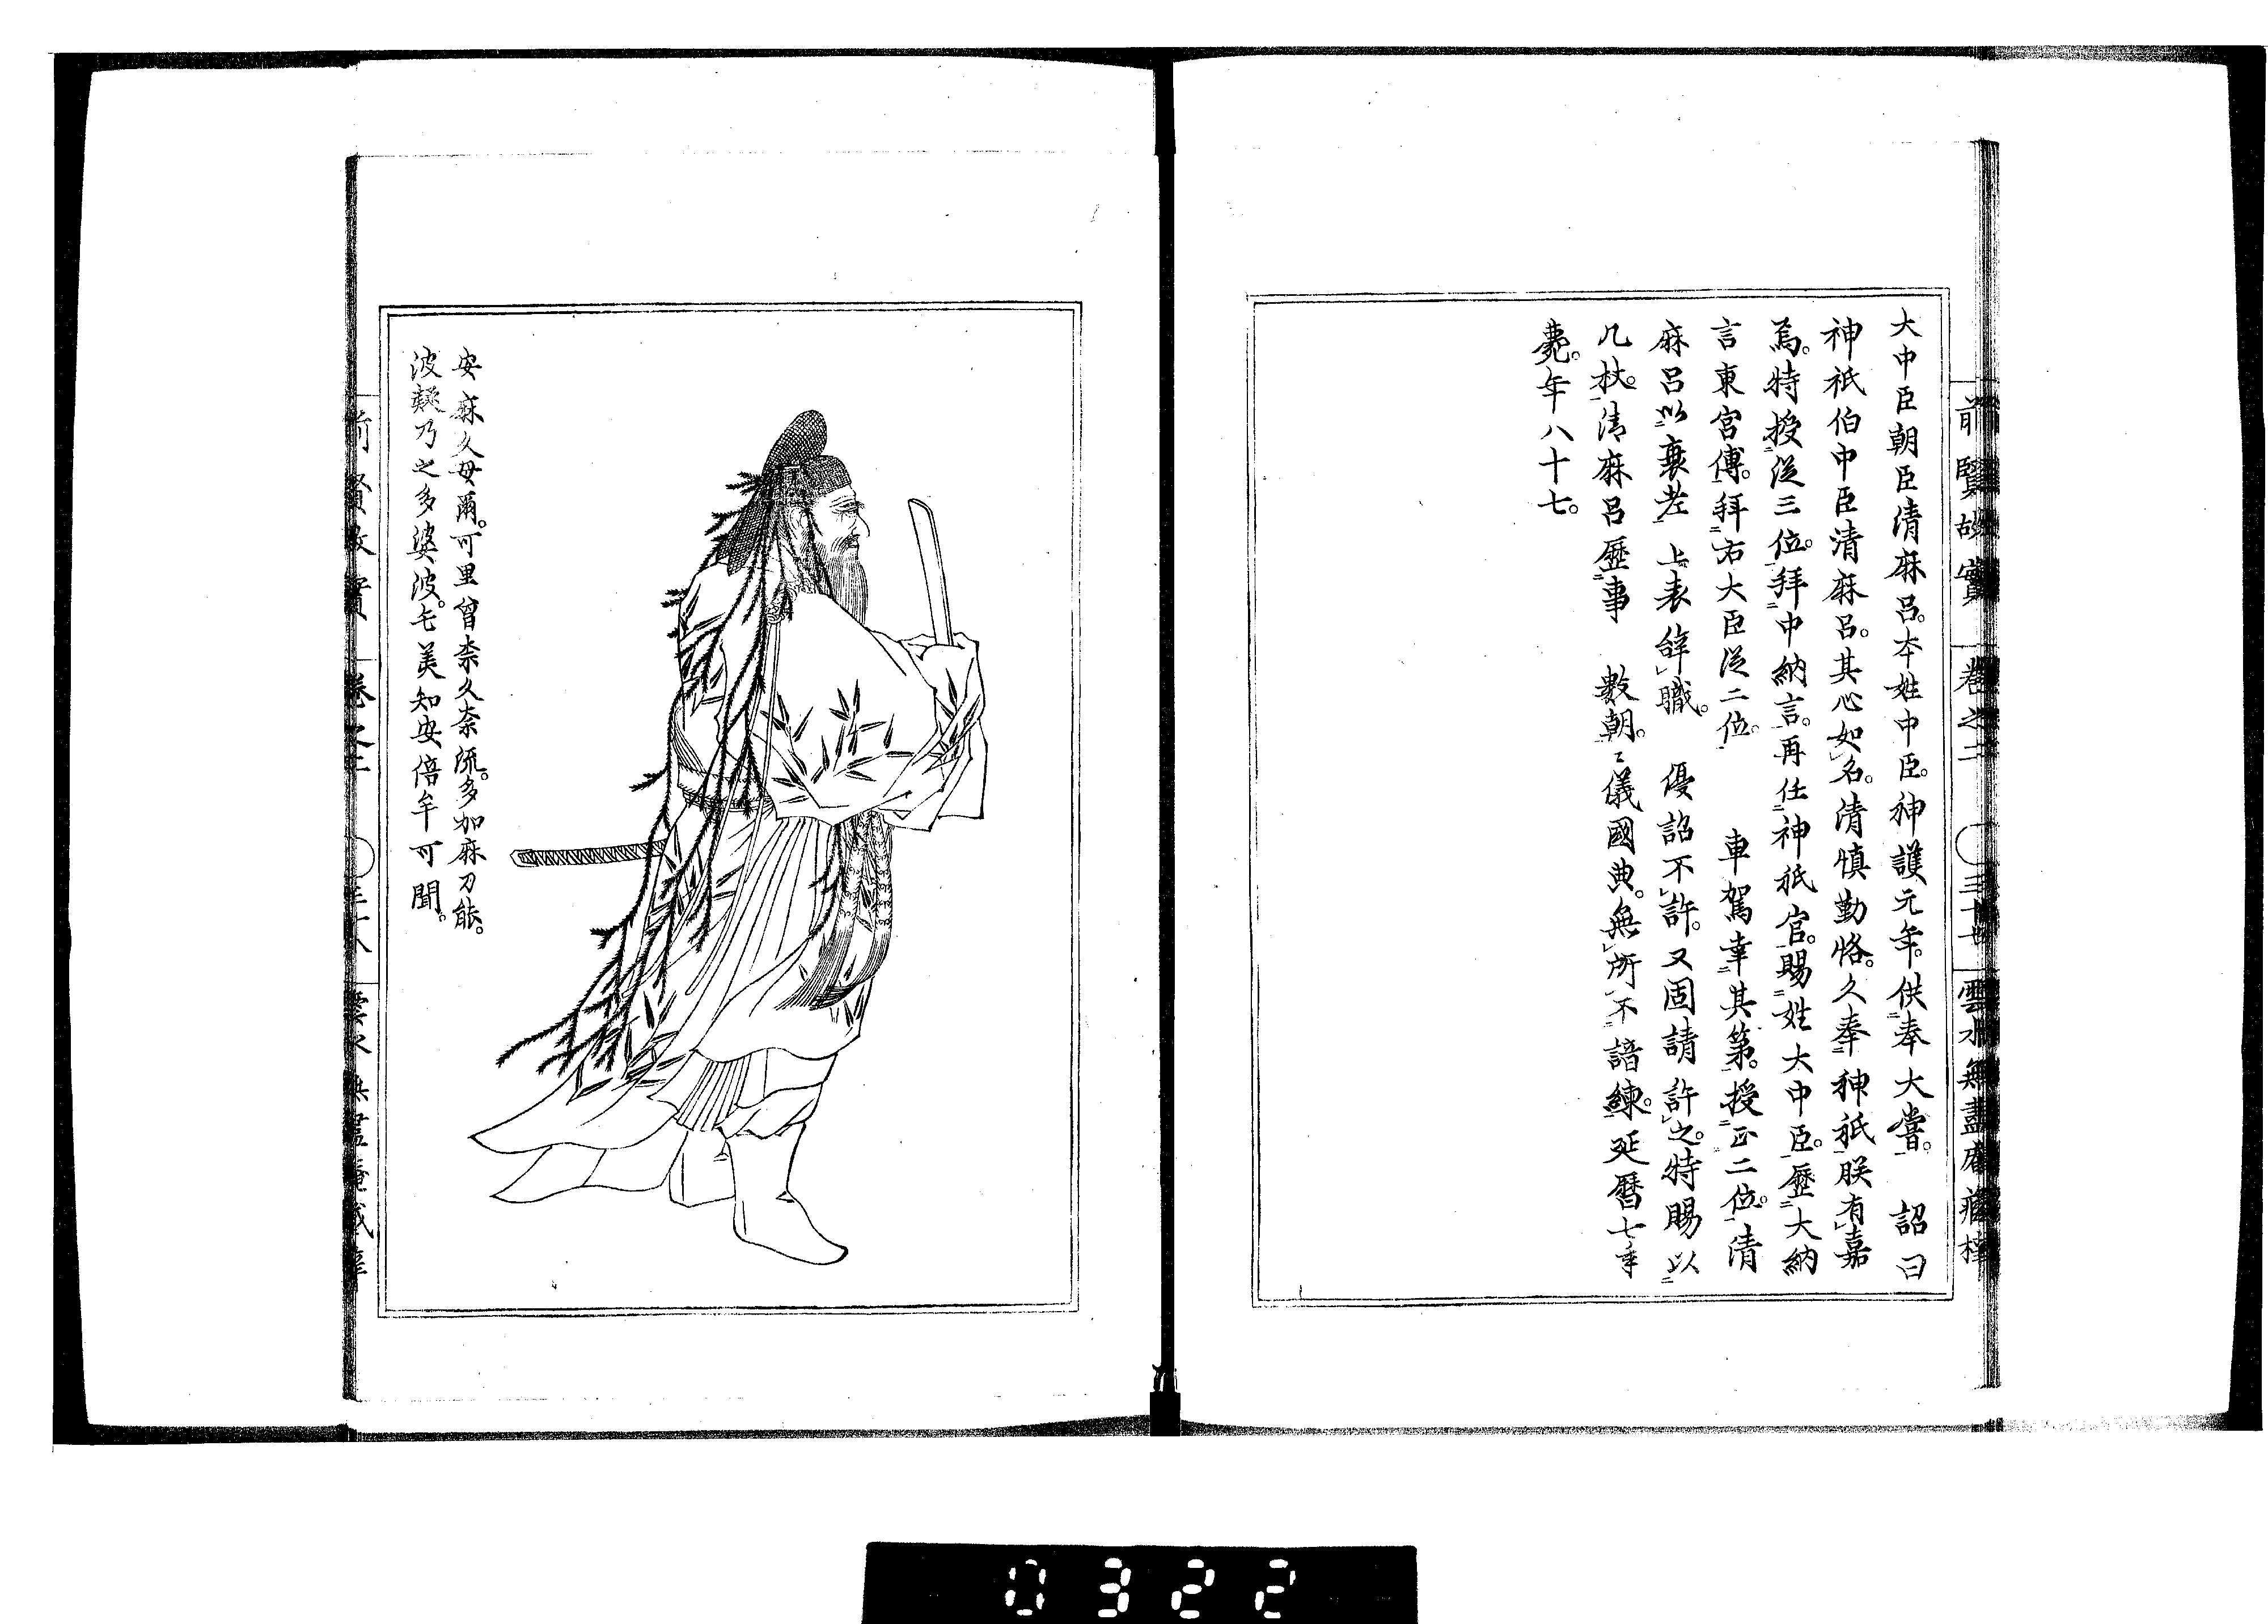 前賢故實 卷之二 三十七 雲水無盡庵藏梓
大中臣朝臣清麻呂。本姓中臣。神護元年。供奉大嘗。 詔曰
神祇伯中臣清麻呂。其心如名。清慎勤恪。久奉神祇朕有嘉
焉。特授從三位。拜中納言。再任神祇官。賜姓大中臣。歷大納
言東宮傅。拜右大臣從二位。 車駕幸其第。授正二位。清
麻呂以衰老 上表辭職。 優詔不許。又固請許之。特賜以
几杖。清麻呂歷事 數朝。〻儀國典。無所不諳練。延曆七年
薨。年八十七。
安麻久母爾。可里曾奈久奈流。多加麻刀能。
波疑乃之多婆波。毛美知安倍牟可聞。
前賢故實 卷之二
0322